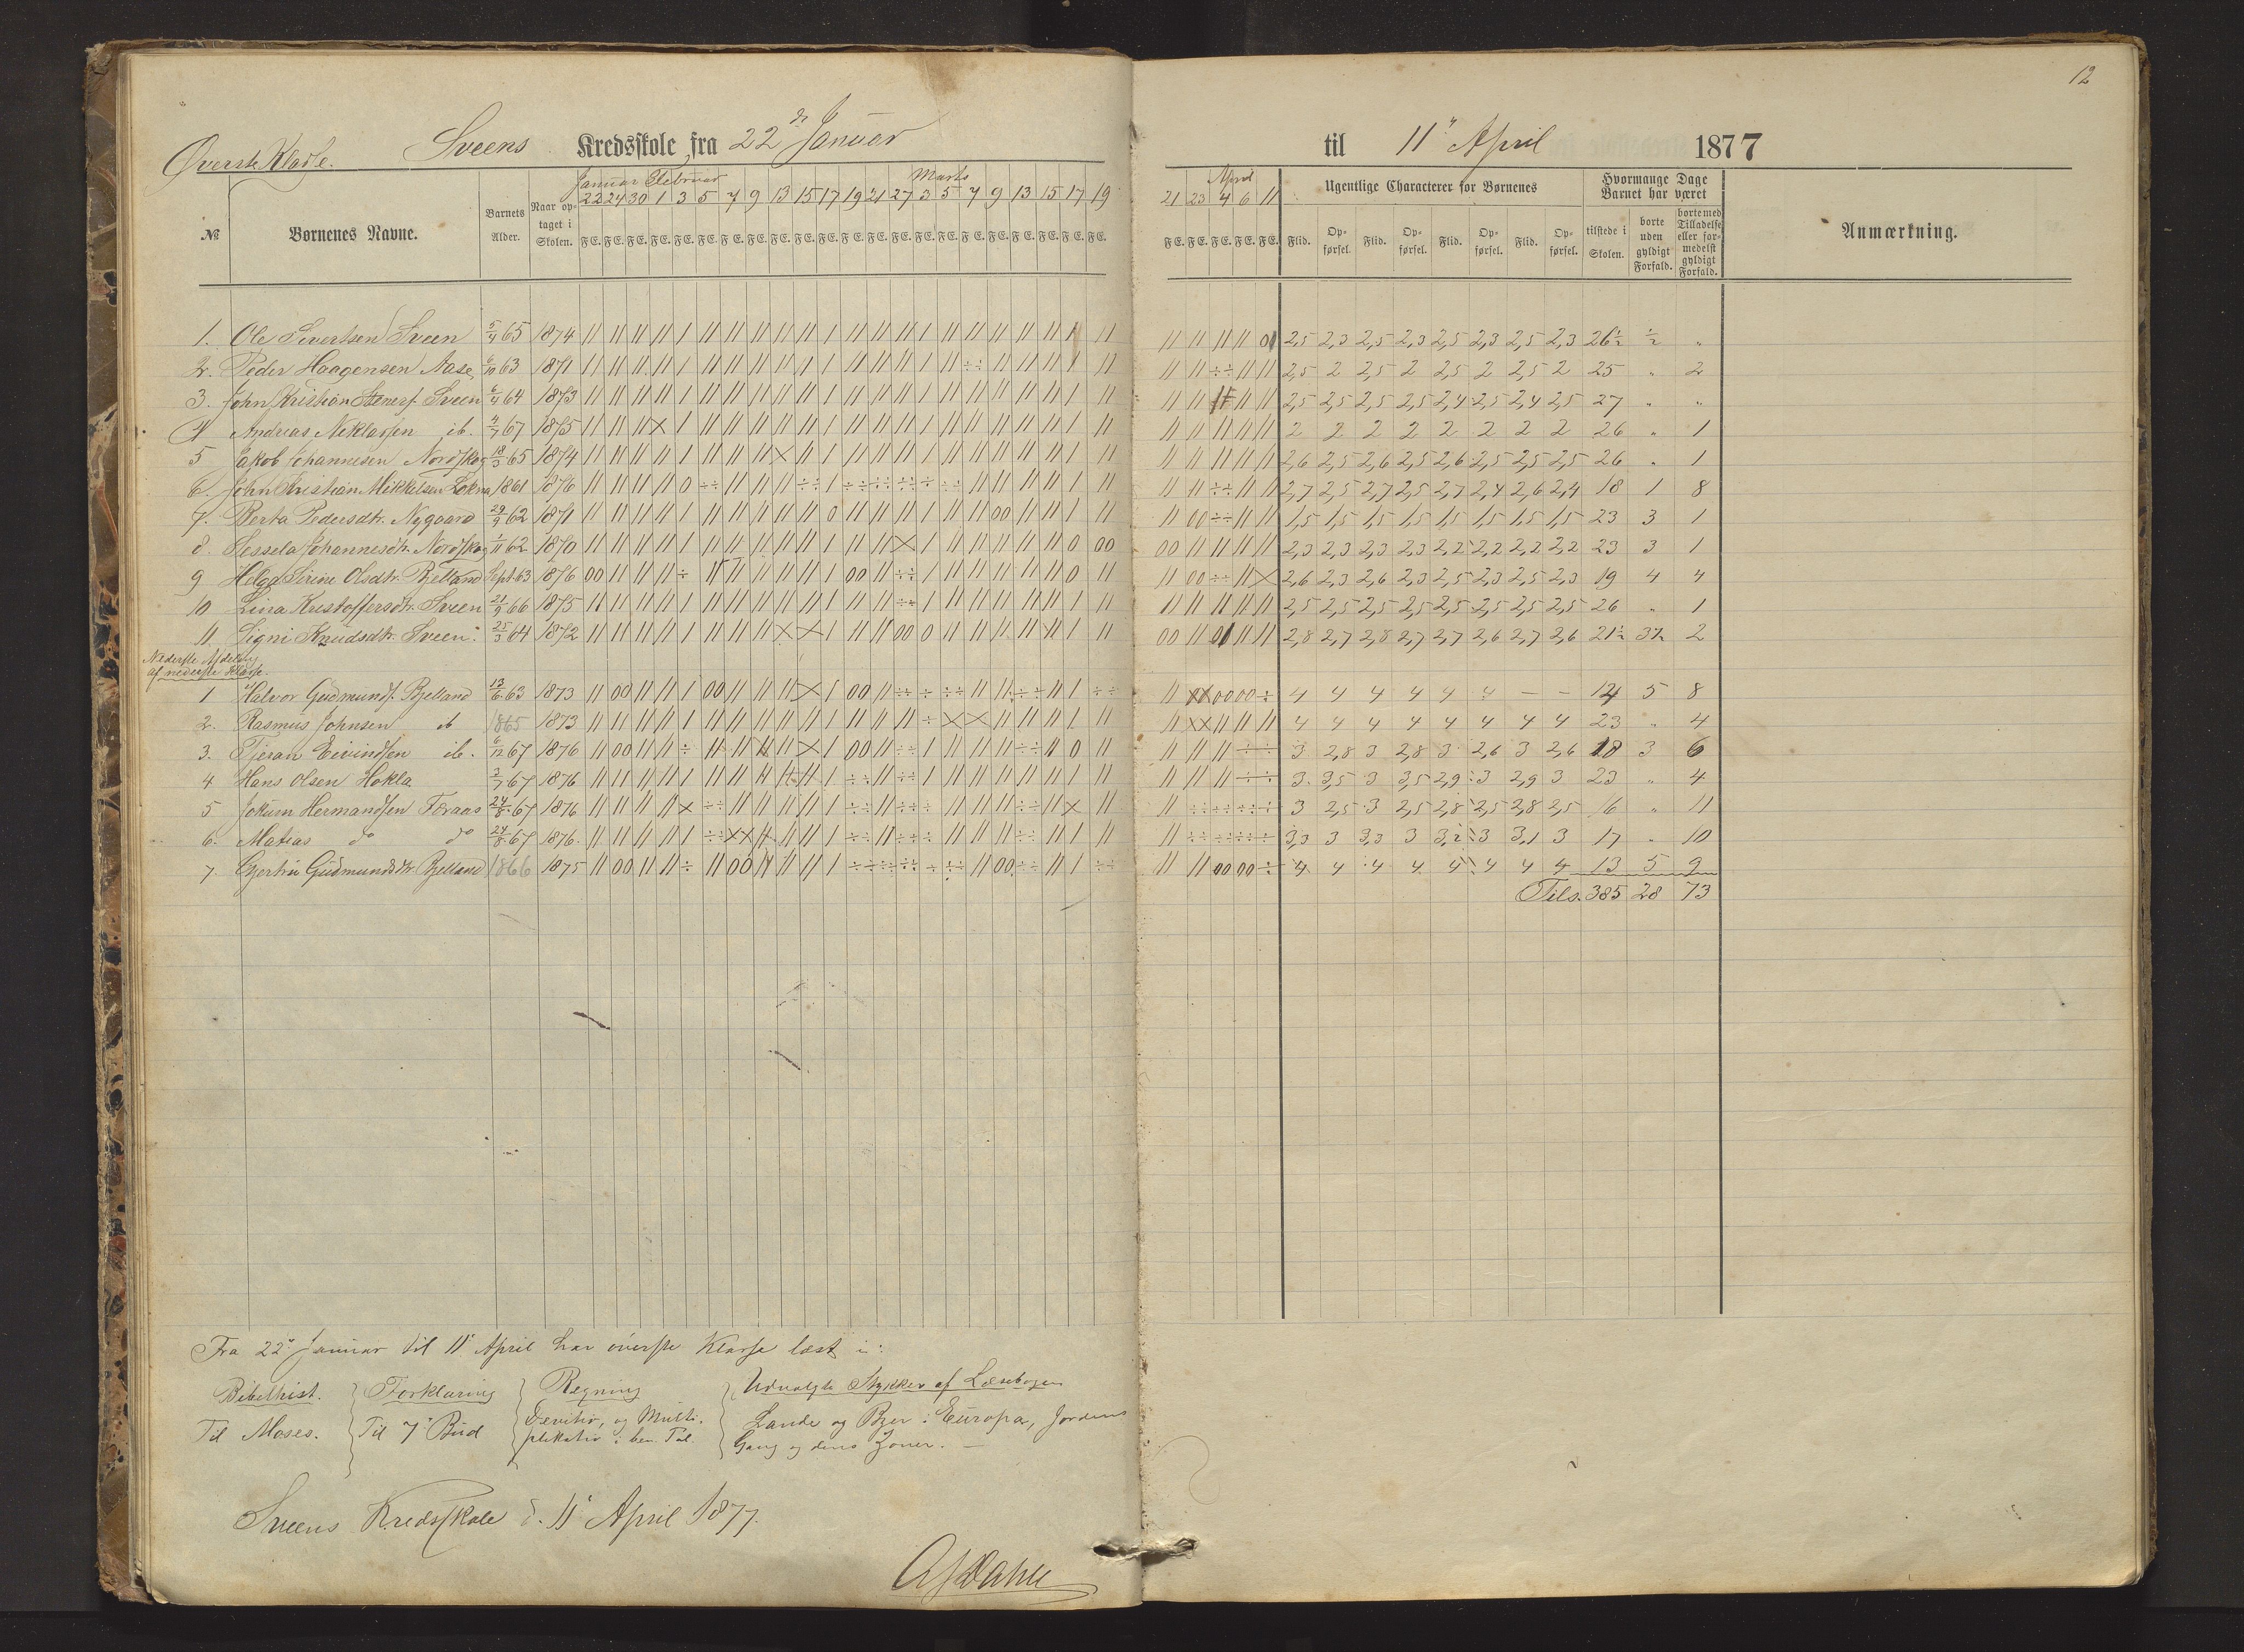 12
Øverste Klasse. Sveens Kredsskole fra 22de Januar til 11te April 1877
Januar Februar Marts April
22 24 30 1 3 5 7 9 13 15 17 19 21 27 3 5 7 9 13 15 17 19 21 23 4 6 11
№ Børnenes Navne. Barnets Alder. Naar optaget i Skolen. F E. Ugentlige Characterer for Børnenes Hvormange Dage Barnet har været Anmærkning.
Flid. Opførsel. Flid. Opførsel. Flid. Opførsel. Flid. Opførsel. tilstede i Skolen. borte uden gyldigt Forfald. borte med Tilladelse eller formedelst gyldigt Forfald.
1. Ole Sivertsen Sveen 5/4 65 1874 2,5 2,3 2,5 2,3 2,5 2,3 2,5 2,3 26½ ½ "
2. Peder Haagensen Aase 6/10 63 1871 2,5 2 2,5 2 2,5 2 2,5 2 25 " 2
3. John Kristian Steners. Sveen 6/4 64 1873 2,5 2,5 2,5 2,5 2,4 2,5 2,4 2,5 27 " "
4 Andreas Niklassen ib. 4/7 67 1875 2 2 2 2 2 2 2 2 26 " 1
5 Jakob Johannesen Nordskog 18/3 65 1874 2,6 2,5 2,6 2,5 2,6 2,5 2,5 2,5 26 " 1
6. John Kristian Mikkelsen 1861 1876 2,7 2,5 2,7 2,5 2,7 2,4 2,6 2,4 18 1 8
7. Berta Pedersdtr. Nygaard 29/9 62 1871 1,5 1,5 1,5 1,5 1,5 1,5 1,5 1,5 23 3 1
8. Sessela Johannesdtr. Nordskog 1/11 62 1870 2,3 2,3 2,3 2,3 2,2 2,2 2,2 2,2 23 3 1
9 Helga Serine Olsdtr. Bjelland Sept. 63 1876 2,6 2,3 2,6 2,3 2,5 2,3 2,5 2,3 19 4 4
10 Lina Kristoffersdtr. Sveen 21/9 66 1875 2,5 2,5 2,5 2,5 2,5 2,5 2,5 2,5 26 " 1
11. Signi Knudsdtr. Sveen 25/3 64 1872 2,8 2,7 2,8 2,7 2,7 2,6 2,7 2,6 21½ 3½ 2
Nederste Afdeling
af nederste Klasse.
1 Halvor Gudmunds. Bjelland 13/6 63 1873 4 4 4 4 4 4 — — 14 5 8
2. Rasmus Johnsen ib 1865 1873 4 4 4 4 4 4 4 4 23 " 4
3. Tjeran Eivindsen ib. 6/12 67 1876 3 2,8 3 2,8 3 2,6 3 2,6 18 3 6
4 Hans Olsen Hokla 2/7 67 1876 3 3,5 3 3,5 2,9 3 2,9 3 23 " 4
5 Jokum Hermandsen Færaas 24/8 67 1876 3 2,5 3 2,5 2,8 2,5 2,8 2,5 16 " 11
6. Matias do do 24/8 67 1876. 3,3 3 3,3 3 3,2 3 3,1 3 17 " 10
7 Gjertru Gudmundsdtr. Bjelland 1866 1875 4 4 4 4 4 4 4 4 13 5 9
Tils. 385 28 73
Fra 22de Januar til 11te April har øverste Klasse læst i:
Bibelhist. Forklaring Regning Udvalgte Stykker af Læsebogen
Til Moses. Til 7de Bud Devitio, og Multi- Lande og Byer i Europa, Jordens
plikatio i ben. Tal. Gang og dens Zoner. —
Sveens Kredsskole d. 11te April 1877.